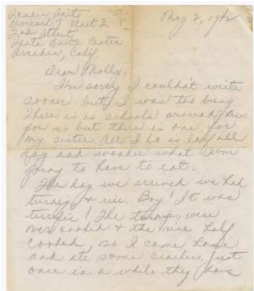 May 2, 1942
Barrack 7 Unit 2
Santa Anita Center
Arcadia, Calif
Dear Molly,
I'm sorry I couldn't write
sooner but I was too busy.
There is no schools around here
for us but there is one for
my sister. All I do is lay all
day and wonder what I'm
going to have to eat.
The day we arrived we had
& rice. Boy! It was
terrible! The were
over cooked & the rice half
cooked, so I came home
and ate some crackers. Just
once in a while they have